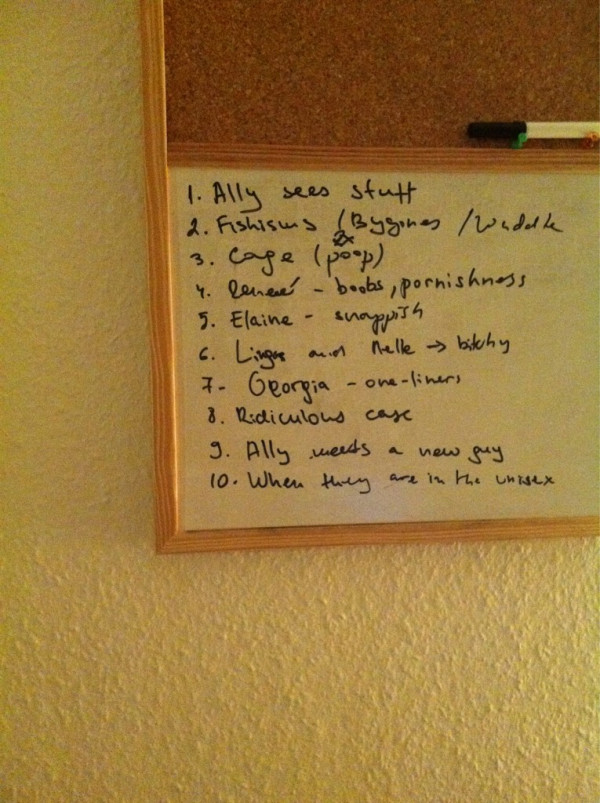 1. Ally sees stuff
2. Fishisms (Bygones / Waddle
2x
3. Cage (poop)
4. Reneé - boobs, pornishness
5. Elaine - snappish
6. Ling and Nelle → bitchy
7- Georgia - one-liners
8. Ridiculous case
9. Ally meets a new guy
10. When they are in the unisex